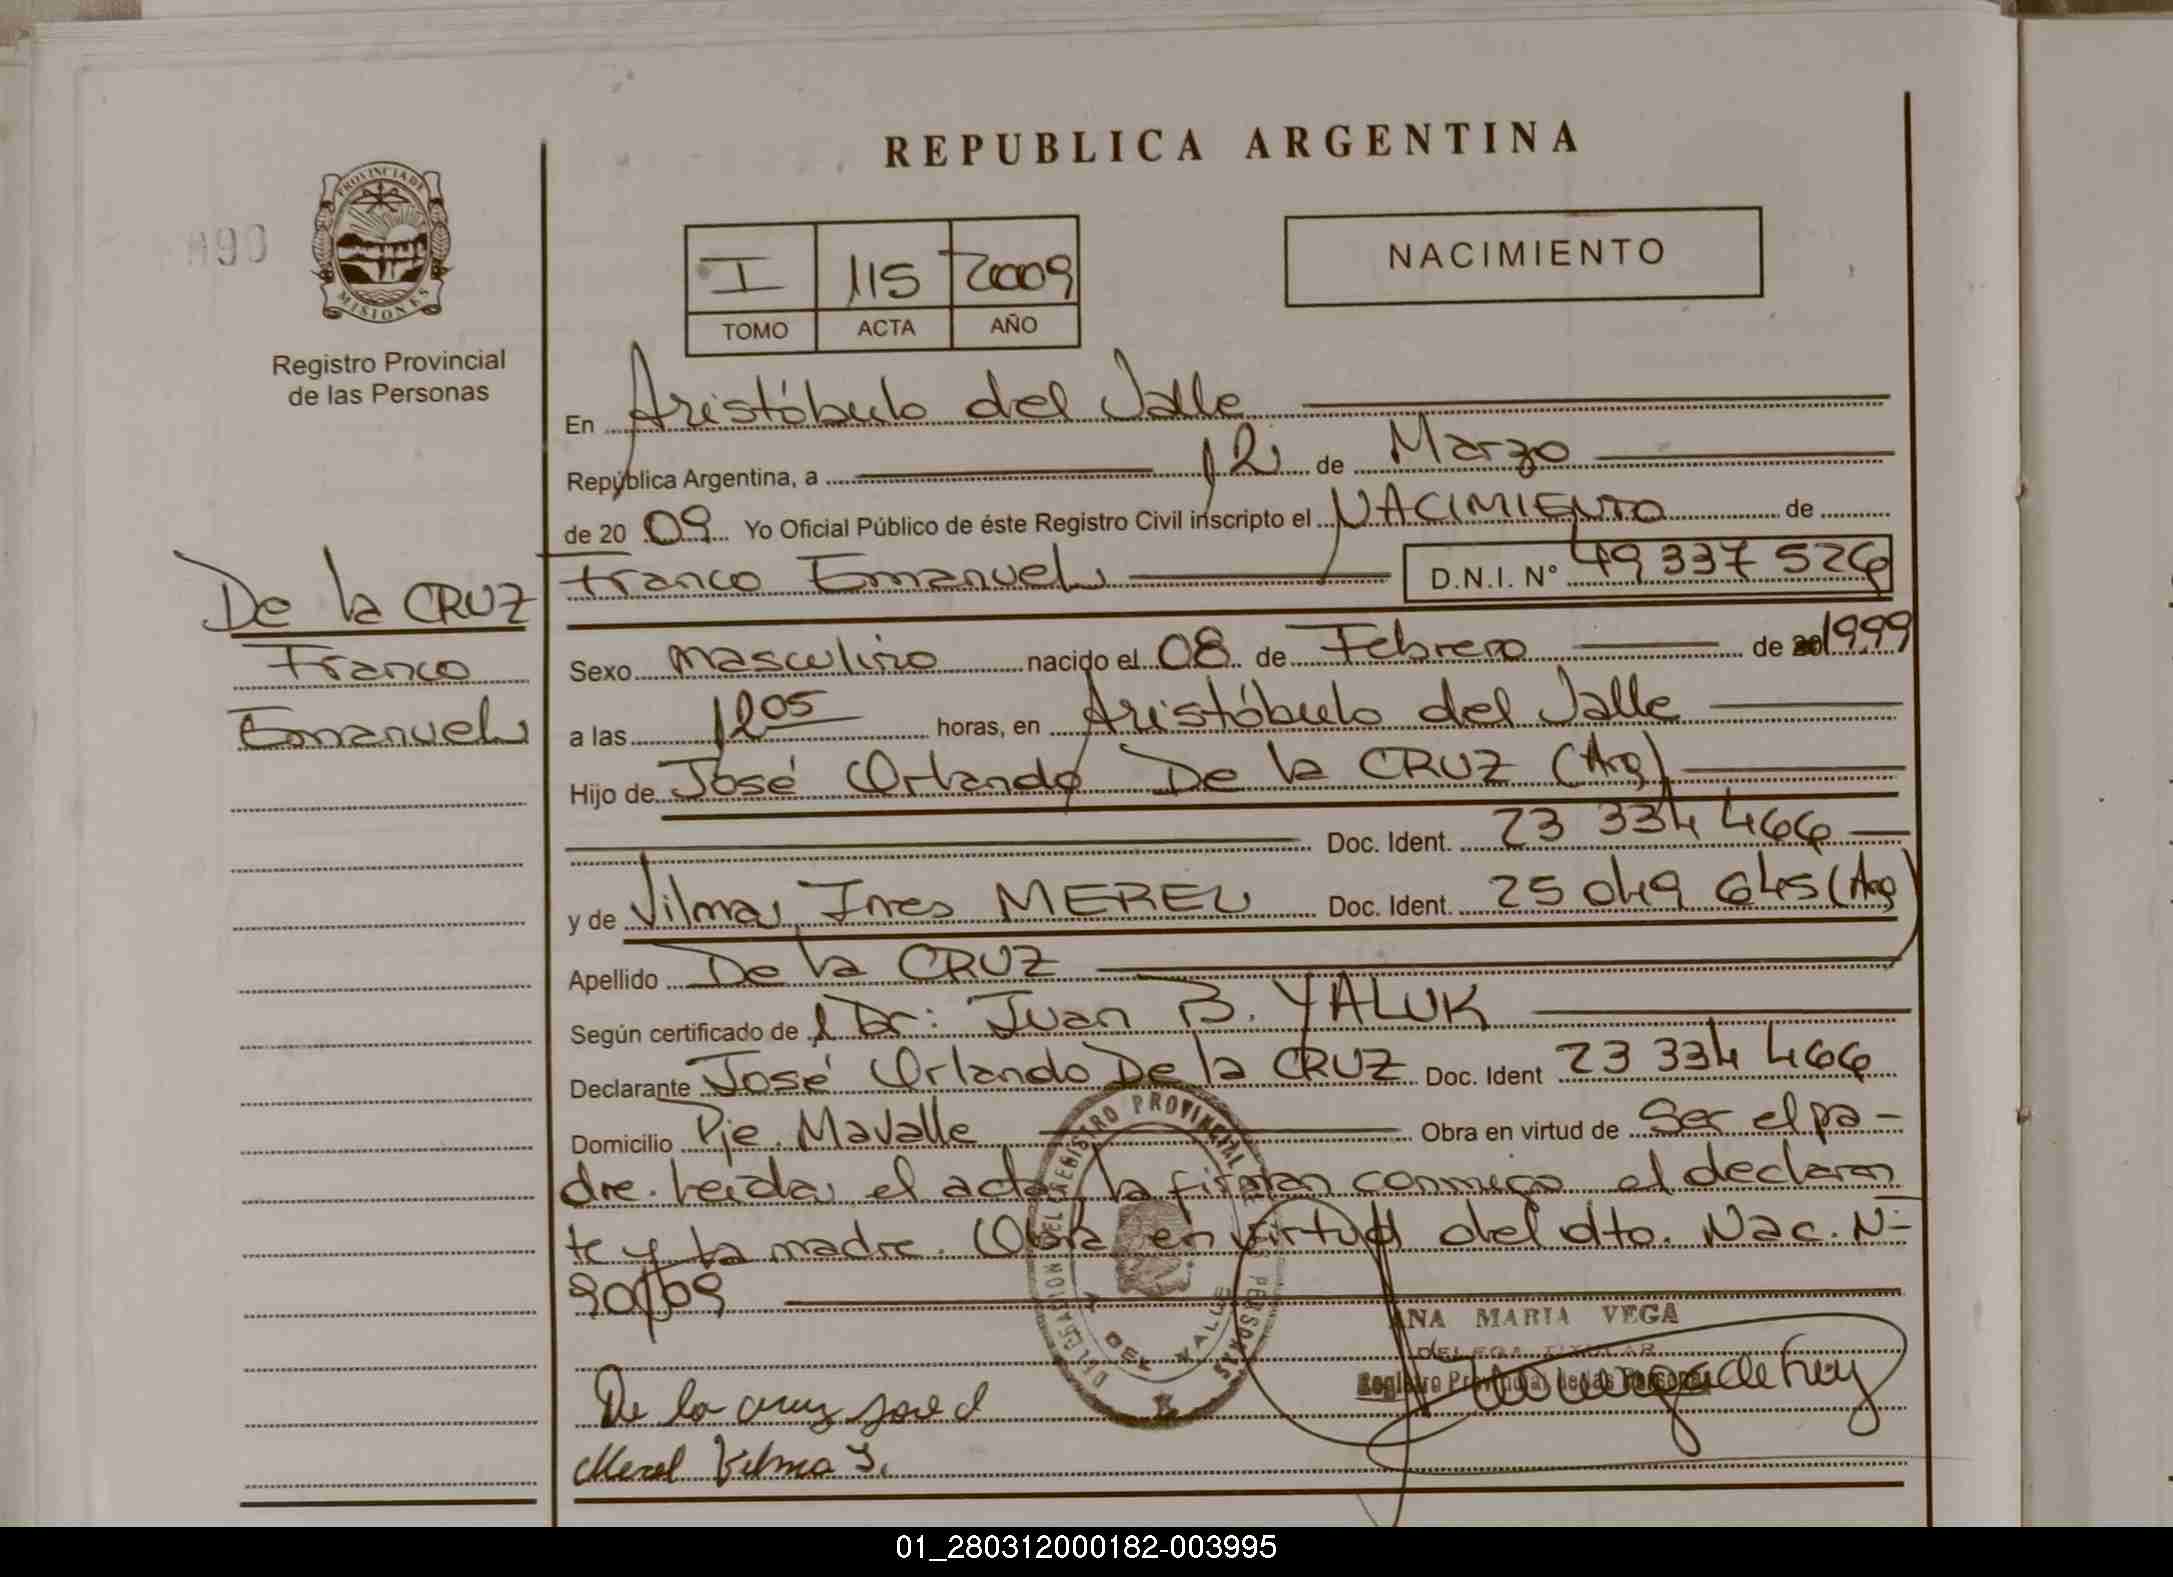 REPUBLICA ARGENTINA
PROVINCIA DE
MISIONES
Registro Provincial
de las Personas
I 115 2009
TOMO ACTA AÑO
NACIMIENTO
En Aristóbulo del Valle
República Argentina, a 12 de Marzo
de 20 09 Yo Oficial Público de éste Registro Civil inscripto el NACIMIENTO de
Franco Emanuel D.N.I. Nº 49 337 526
De la CRUZ
Franco
Emanuel
Sexo masculino nacido el 08 de Febrero de 1999
a las 12 05 horas, en Aristóbulo del Valle
Hijo de José Orlando De la CRUZ (Arg)
Doc. Ident. 23 334 466
y de Vilma Ines MEREL Doc. Ident. 25 049 645 (Arg)
Apellido De la CRUZ
Según certificado de l Dr: Juan B. YALUK
Declarante José Orlando De la CRUZ Doc. Ident 23 334 466
Domicilio Pje. Mavalle Obra en virtud de Ser el pa-
dre. Leida el acta la firman conmigo el declaran
te y la madre. Obra en virtud del dto. Nac. Nº
90/09
DELEGACION DEL REGISTRO PROVINCIAL DE LAS PERSONAS
DEL VALLE
ANA MARIA VEGA
DELEGA TITULAR
Registro Provincial de las Personas
De la cruz jose
Merel Vilma I.
01_280312000182-003995